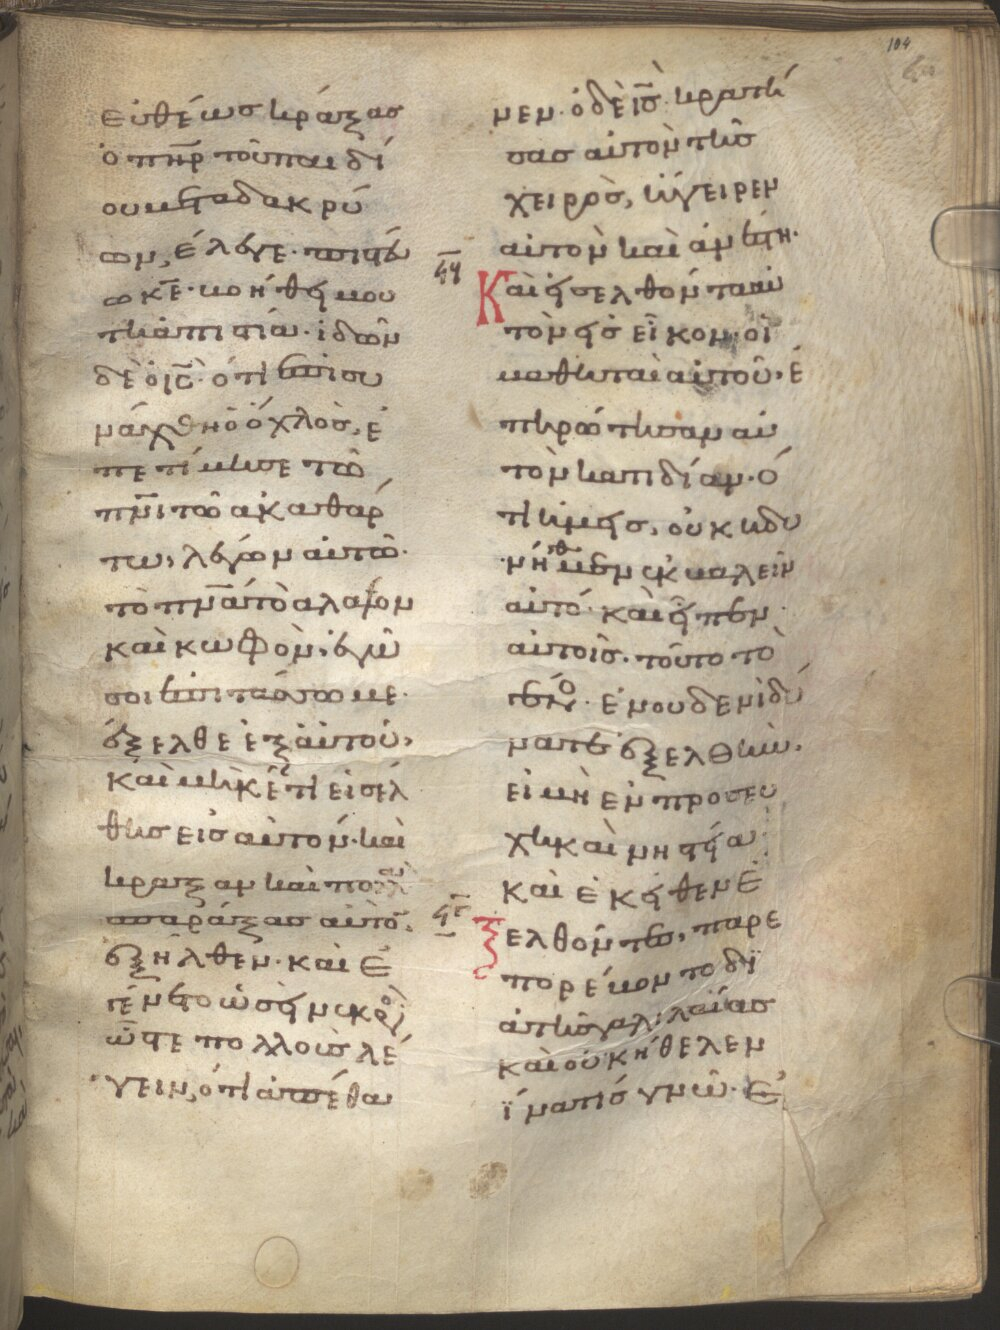 104
εὐθέως κράξας
ὁ πη̅ρ τοῦ παιδί
ου μετὰ δακρύ
ων, ἔλεγε· πιστεύ
ω κ̅ε· βοήθει μου
τῆ ἀπιστία· ἰδὼν
δὲ ὁ ι̅ς̅· ὅτι ἐπισυ
νάχθη ὁ ὄχλος, ἐ
πετίμησε τῶ
πν̅ι τῶ ἀκαθάρ
τω, λέγων αὐτῶ·
τὸ πν̅α τὸ ἄλαλον
καὶ κωφὸν, ἐγὼ
σοι ἐπιτάσσω με·
ἔξελθε ἐξ αὐτοῦ,
καὶ μηκέτι εἰσέλ
θης εἰς αὐτόν· καὶ
κράξαν καὶ πολλὰ
σπαράξας αὐτὸ̅,
ἐξῆλθεν· καὶ ἐ
γένετο ὡσεὶ νεκρὸ
ὥστε πολλοὺς λέ
γειν, ὅτι ἀπέθα
νεν· ὁ δὲ ι̅ς̅ κρατή
σας αὐτὸν τῆς
χειρὸς, ἤγειρεν
αὐτὸν καὶ ἀνέστη·
Καὶ εἰσελθόντα αὐ
τὸν εἰς οἶκον· οἱ
μαθηταὶ αὐτοῦ, ἐ
πηρώτησαν αὐ
τὸν κατιδίαν· ὅ
τι ἡμεῖς, οὐκ ἠδυ
νήθημεν ἐκβαλεῖν
αὐτό· καὶ εἶπεν
αὐτοῖς· τοῦτο τὸ
γένο· ἐν οὐδενὶ δύ
ναται ἐξελθεῖν,
εἰ μὴ ἐν προσευ
χῆ καὶ νηστεία·
καὶ ἐκεῖθεν ἐ
ξελθόντες, παρε
πορεύοντο δι
ὰ τῆς γαλιλαίας
καὶ οὐκ ἤθελεν
ἵνα τὶς γνῶ· ἐ